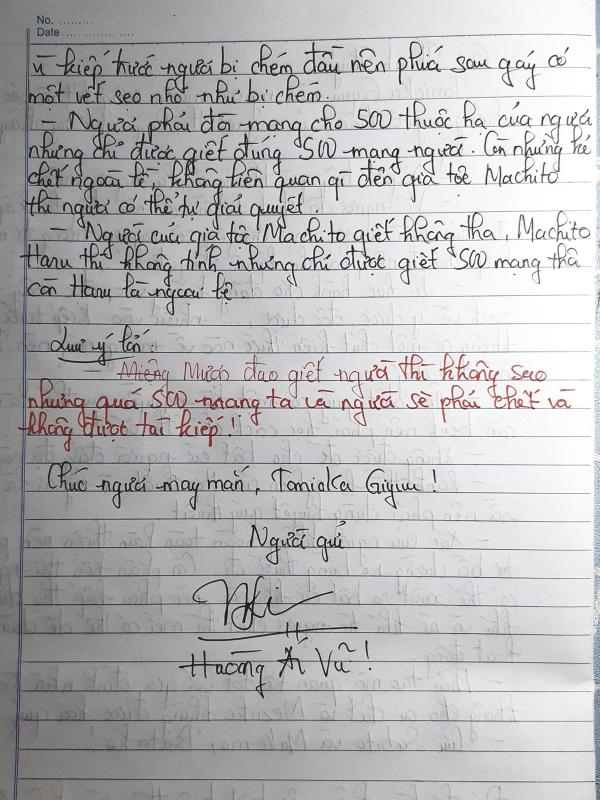 No. .........
Date ..................
vì kiếp trước ngươi bị chém đầu nên phía sau gáy có
một vết seo nhỏ như bị chém.
– Ngươi phải đòi mạng cho 500 thuộc hạ của ngươi
nhưng chỉ được giết đúng 500 mạng người. Còn những kẻ
chết ngoài lề, không liên quan gì đến gia tộc Machito
thì ngươi có thể tự giải quyết.
– Người của gia tộc Machito giết không tha, Machito
Haru thì không tính nhưng chỉ được giết 500 mạng thôi
còn Haru là ngoại lệ
Lưu ý lần:
– Mượn đao giết người thì không sao
nhưng quá 500 mạng ta và ngươi sẽ phải chết và
không được tái kiếp!
Chúc ngươi may mắn, Tomioka Giyuu!
Người gửi
Hương Ái Vũ!